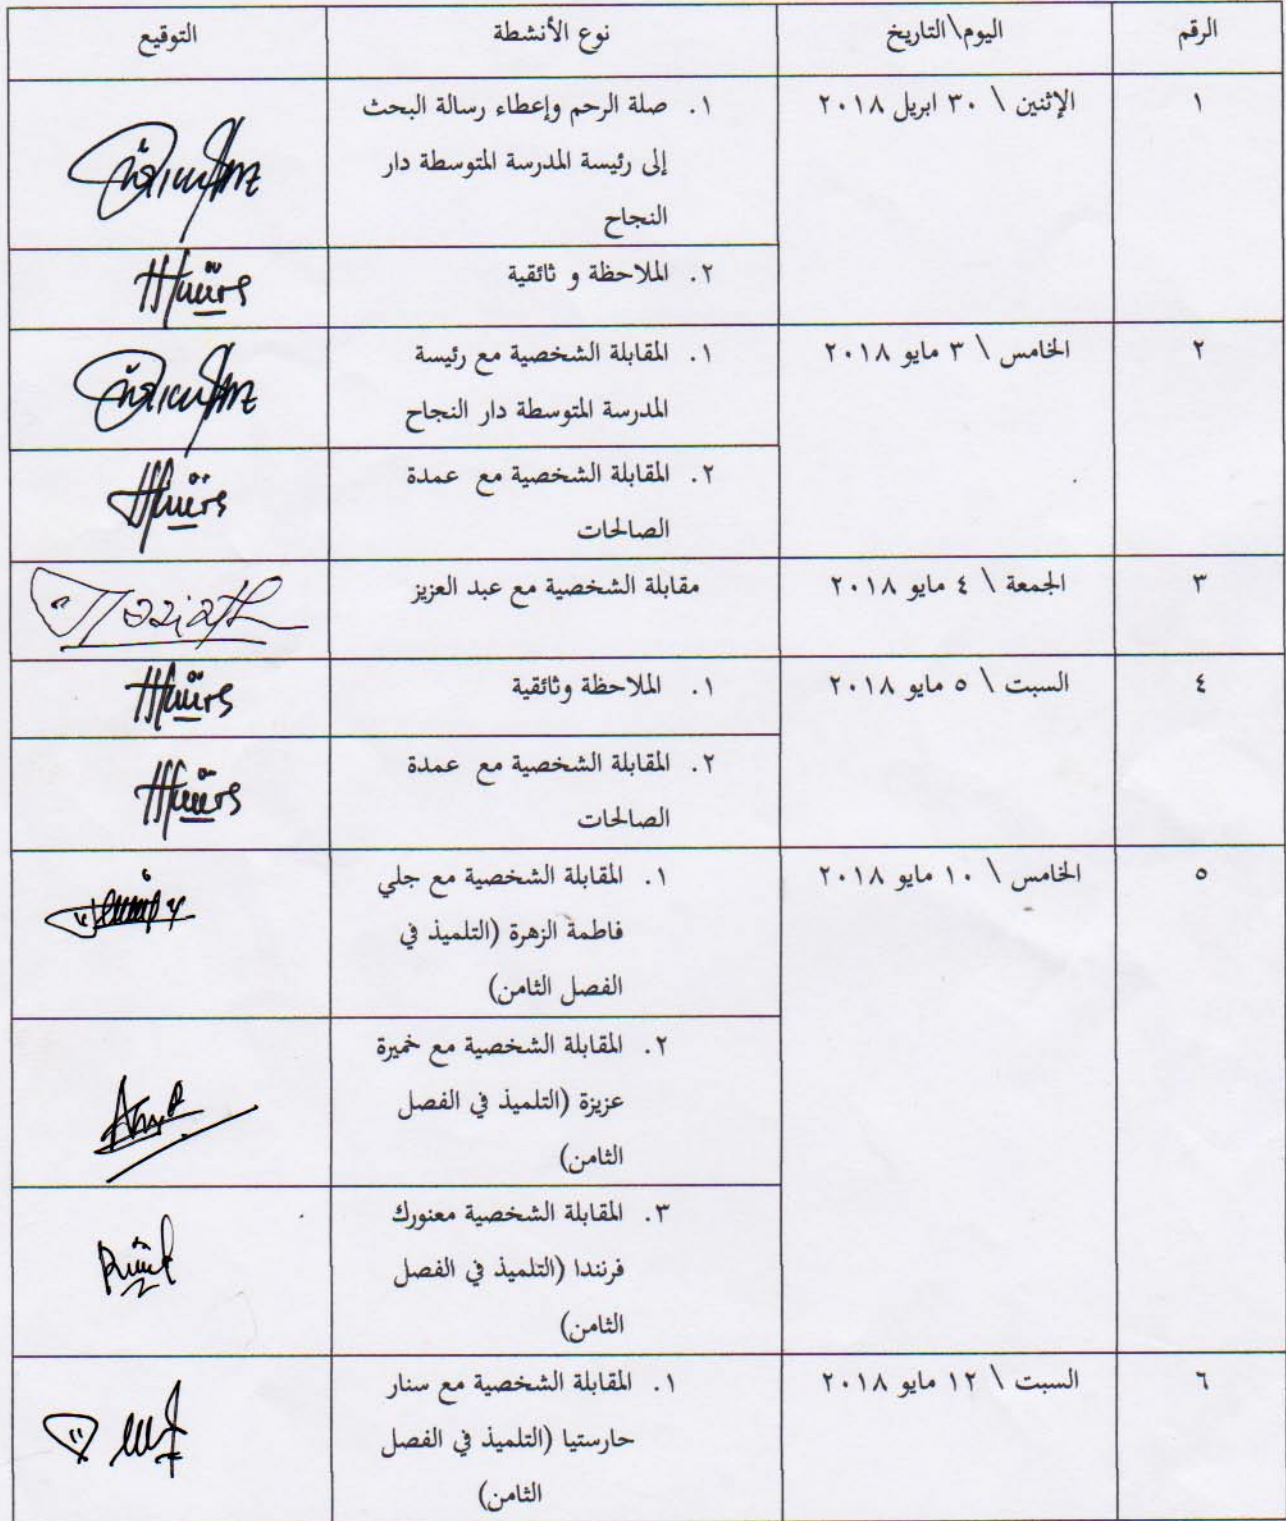 الرقم اليوم\التاريخ نوع الأنشطة التوقيع
١ الإثنين \ ٣٠ ابريل ٢٠١٨ ١. صلة الرحم وإعطاء رسالة البحث
إلى رئيسة المدرسة المتوسطة دار
النجاح
٢. الملاحظة و ثائقية
٢ الخامس \ ٣ مايو ٢٠١٨ ١. المقابلة الشخصية مع رئيسة
المدرسة المتوسطة دار النجاح
٢. المقابلة الشخصية مع عمدة
الصالحات
٣ الجمعة \ ٤ مايو ٢٠١٨ مقابلة الشخصية مع عبد العزيز
٤ السبت \ ٥ مايو ٢٠١٨ ١. الملاحظة وثائقية
٢. المقابلة الشخصية مع عمدة
الصالحات
٥ الخامس \ ١٠ مايو ٢٠١٨ ١. المقابلة الشخصية مع جلي
فاطمة الزهرة (التلميذ في
الفصل الثامن)
٢. المقابلة الشخصية مع خميرة
عزيزة (التلميذ في الفصل
الثامن)
٣. المقابلة الشخصية معنورك
فرنندا (التلميذ في الفصل
الثامن)
٦ السبت \ ١٢ مايو ٢٠١٨ ١. المقابلة الشخصية مع سنار
حارستيا (التلميذ في الفصل
الثامن)